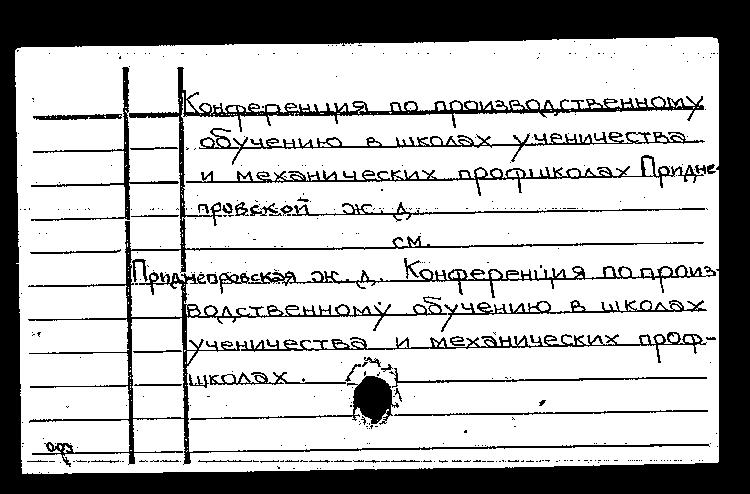 Конференция по производственному
обучению в школах ученичества
и механических профшколах Придне-
провской ж. д.
см.
Приднепровская ж. д. Конференция по произ-
водственному обучению в школах
ученичества и механических проф-
школах.